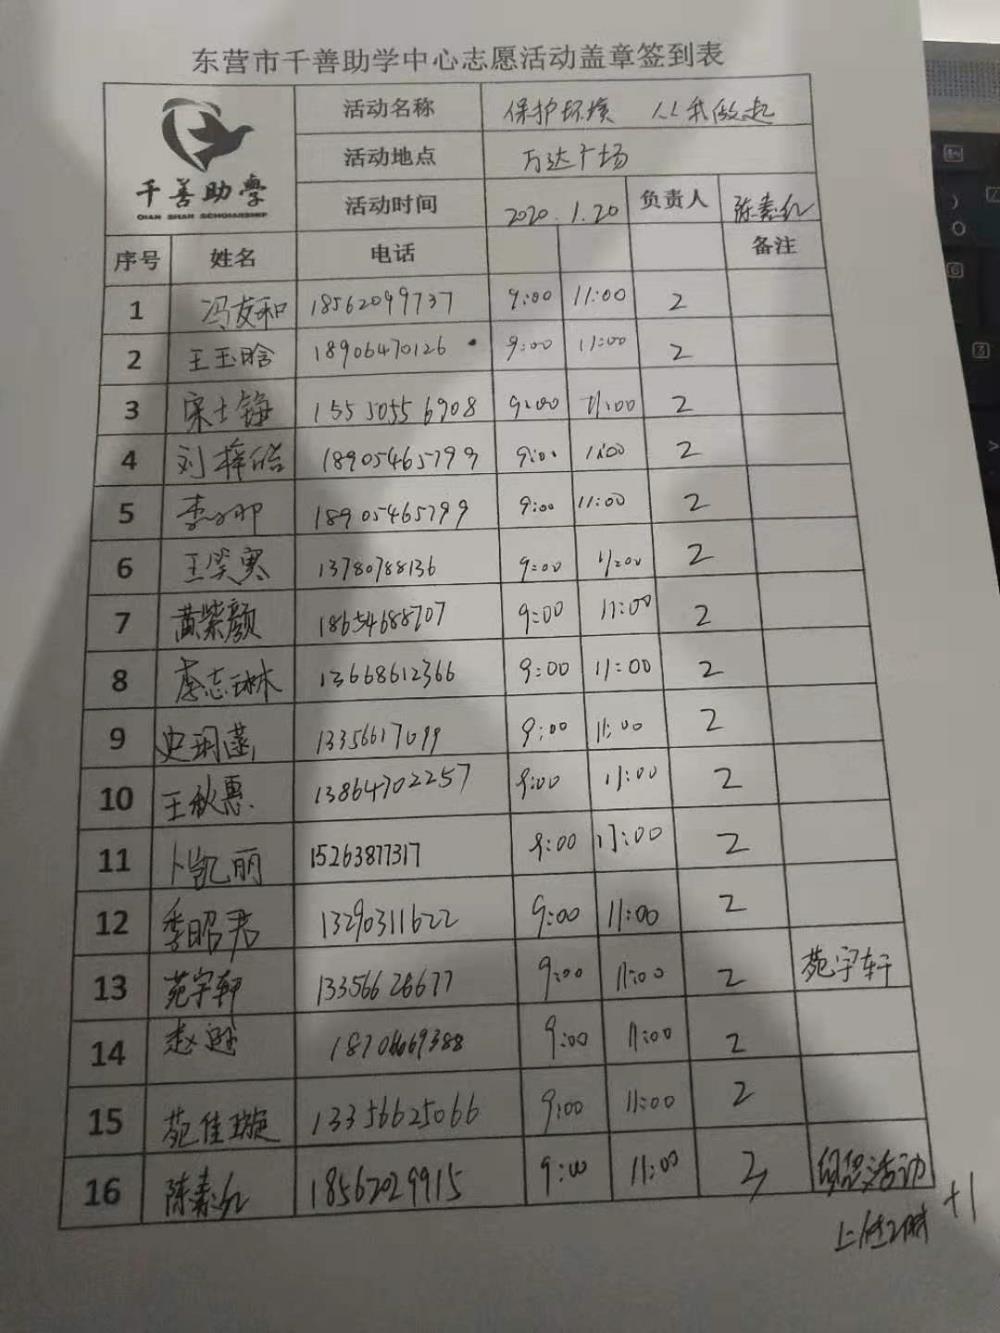 东营市千善助学中心志愿活动盖章签到表
千善助學
QIAN SHAN SCHOLARSHIP
活动名称 保护环境 从我做起
活动地点 万达广场
活动时间 2020.1.20 负责人 陈素红
序号 姓名 电话 备注
1 冯友和 18562099737 9:00 11:00 2
2 王玉晗 18906470126 9:00 11:00 2
3 宋士铮 15550556908 9:00 11:00 2
4 刘梓皓 18905465799 9:00 11:00 2
5 18905465799 9:00 11:00 2
6 王笑寒 13780788136 9:00 11:00 2
7 黄紫颜 18654688707 9:00 11:00 2
8 志琳 13668612366 9:00 11:00 2
9 史玥菡 13356617099 9:00 11:00 2
10 王秋惠 13864702257 9:00 11:00 2
11 卜凯丽 15263877317 9:00 11:00 2
12 季昭君 13290311622 9:00 11:00 2
13 苑宇轩 13356626677 9:00 11:00 2 苑宇轩
14 赵 9:00 11:00 2
15 苑佳璇 13356625066 9:00 11:00 2
16 陈素红 18562029915 9:00 11:00 3 组织活动
+1